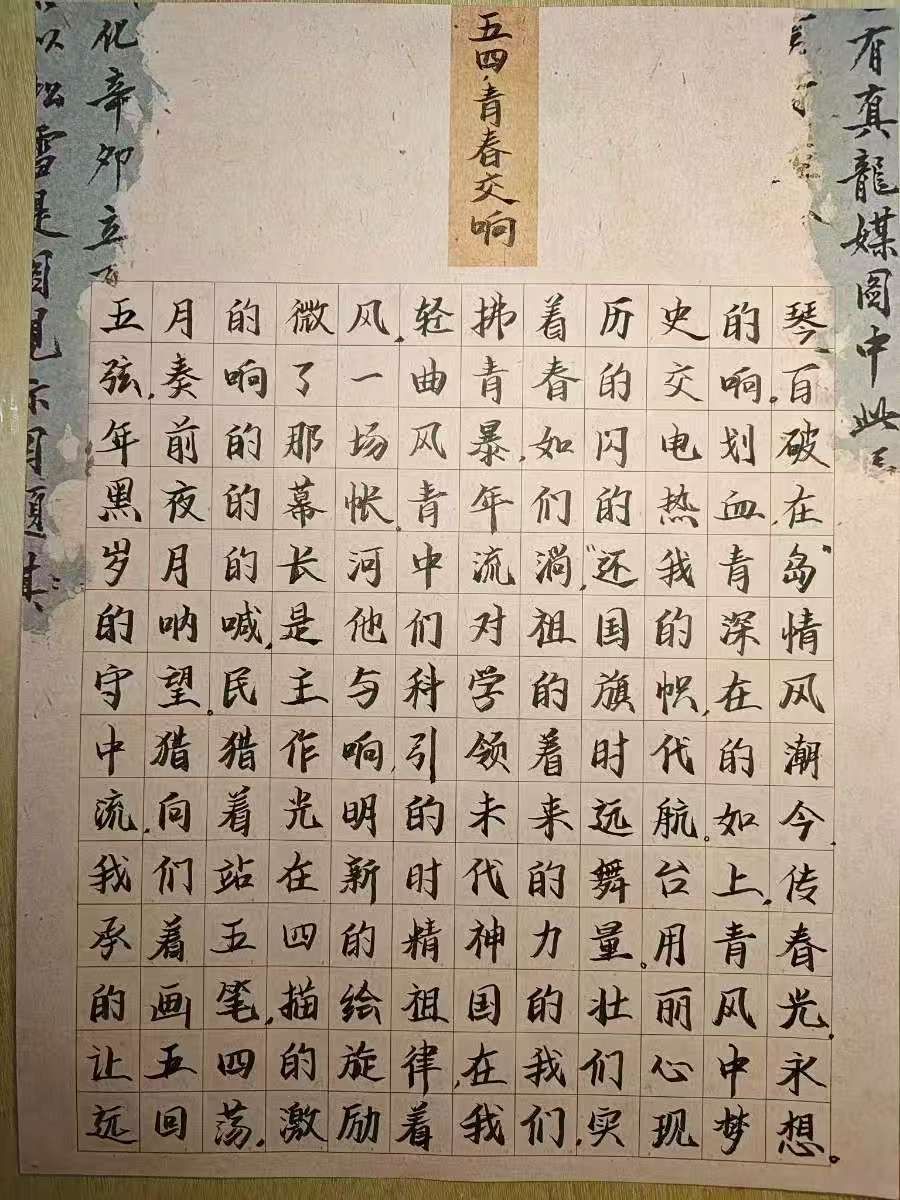 有真龍媒圖中此
五四,青春交响
化辛卯立
以松雪是圖見示用題其
五月的微风,轻拂着历史的琴
弦,奏响了一曲青春的交响。百
年前的那场风暴,如闪电划破
黑夜的幕帐,青年们的热血,在
岁月的长河中流淌,“还我青岛”
的呐喊,是他们对祖国的深情
守望。民主与科学的旗帜,在风
中猎猎作响,引领着时代的潮
流,向着光明的未来远航。如今,
我们站在新时代的舞台上,传
承着五四的精神力量。用青春
的画笔,描绘祖国的壮丽风光,
让五四的旋律,在我们心中永
远回荡,激励着我们,实现梦想。